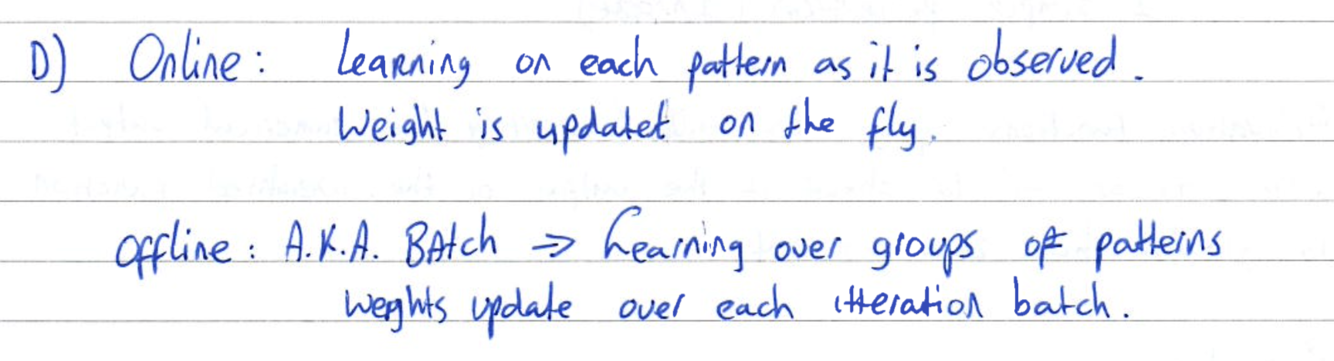 D) Online: Learning on each pattern as it is observed.
Weight is updatet on the fly.
Offline: A.K.A. BAtch => Learning over groups of patterns
Weghts update over each itteration batch.